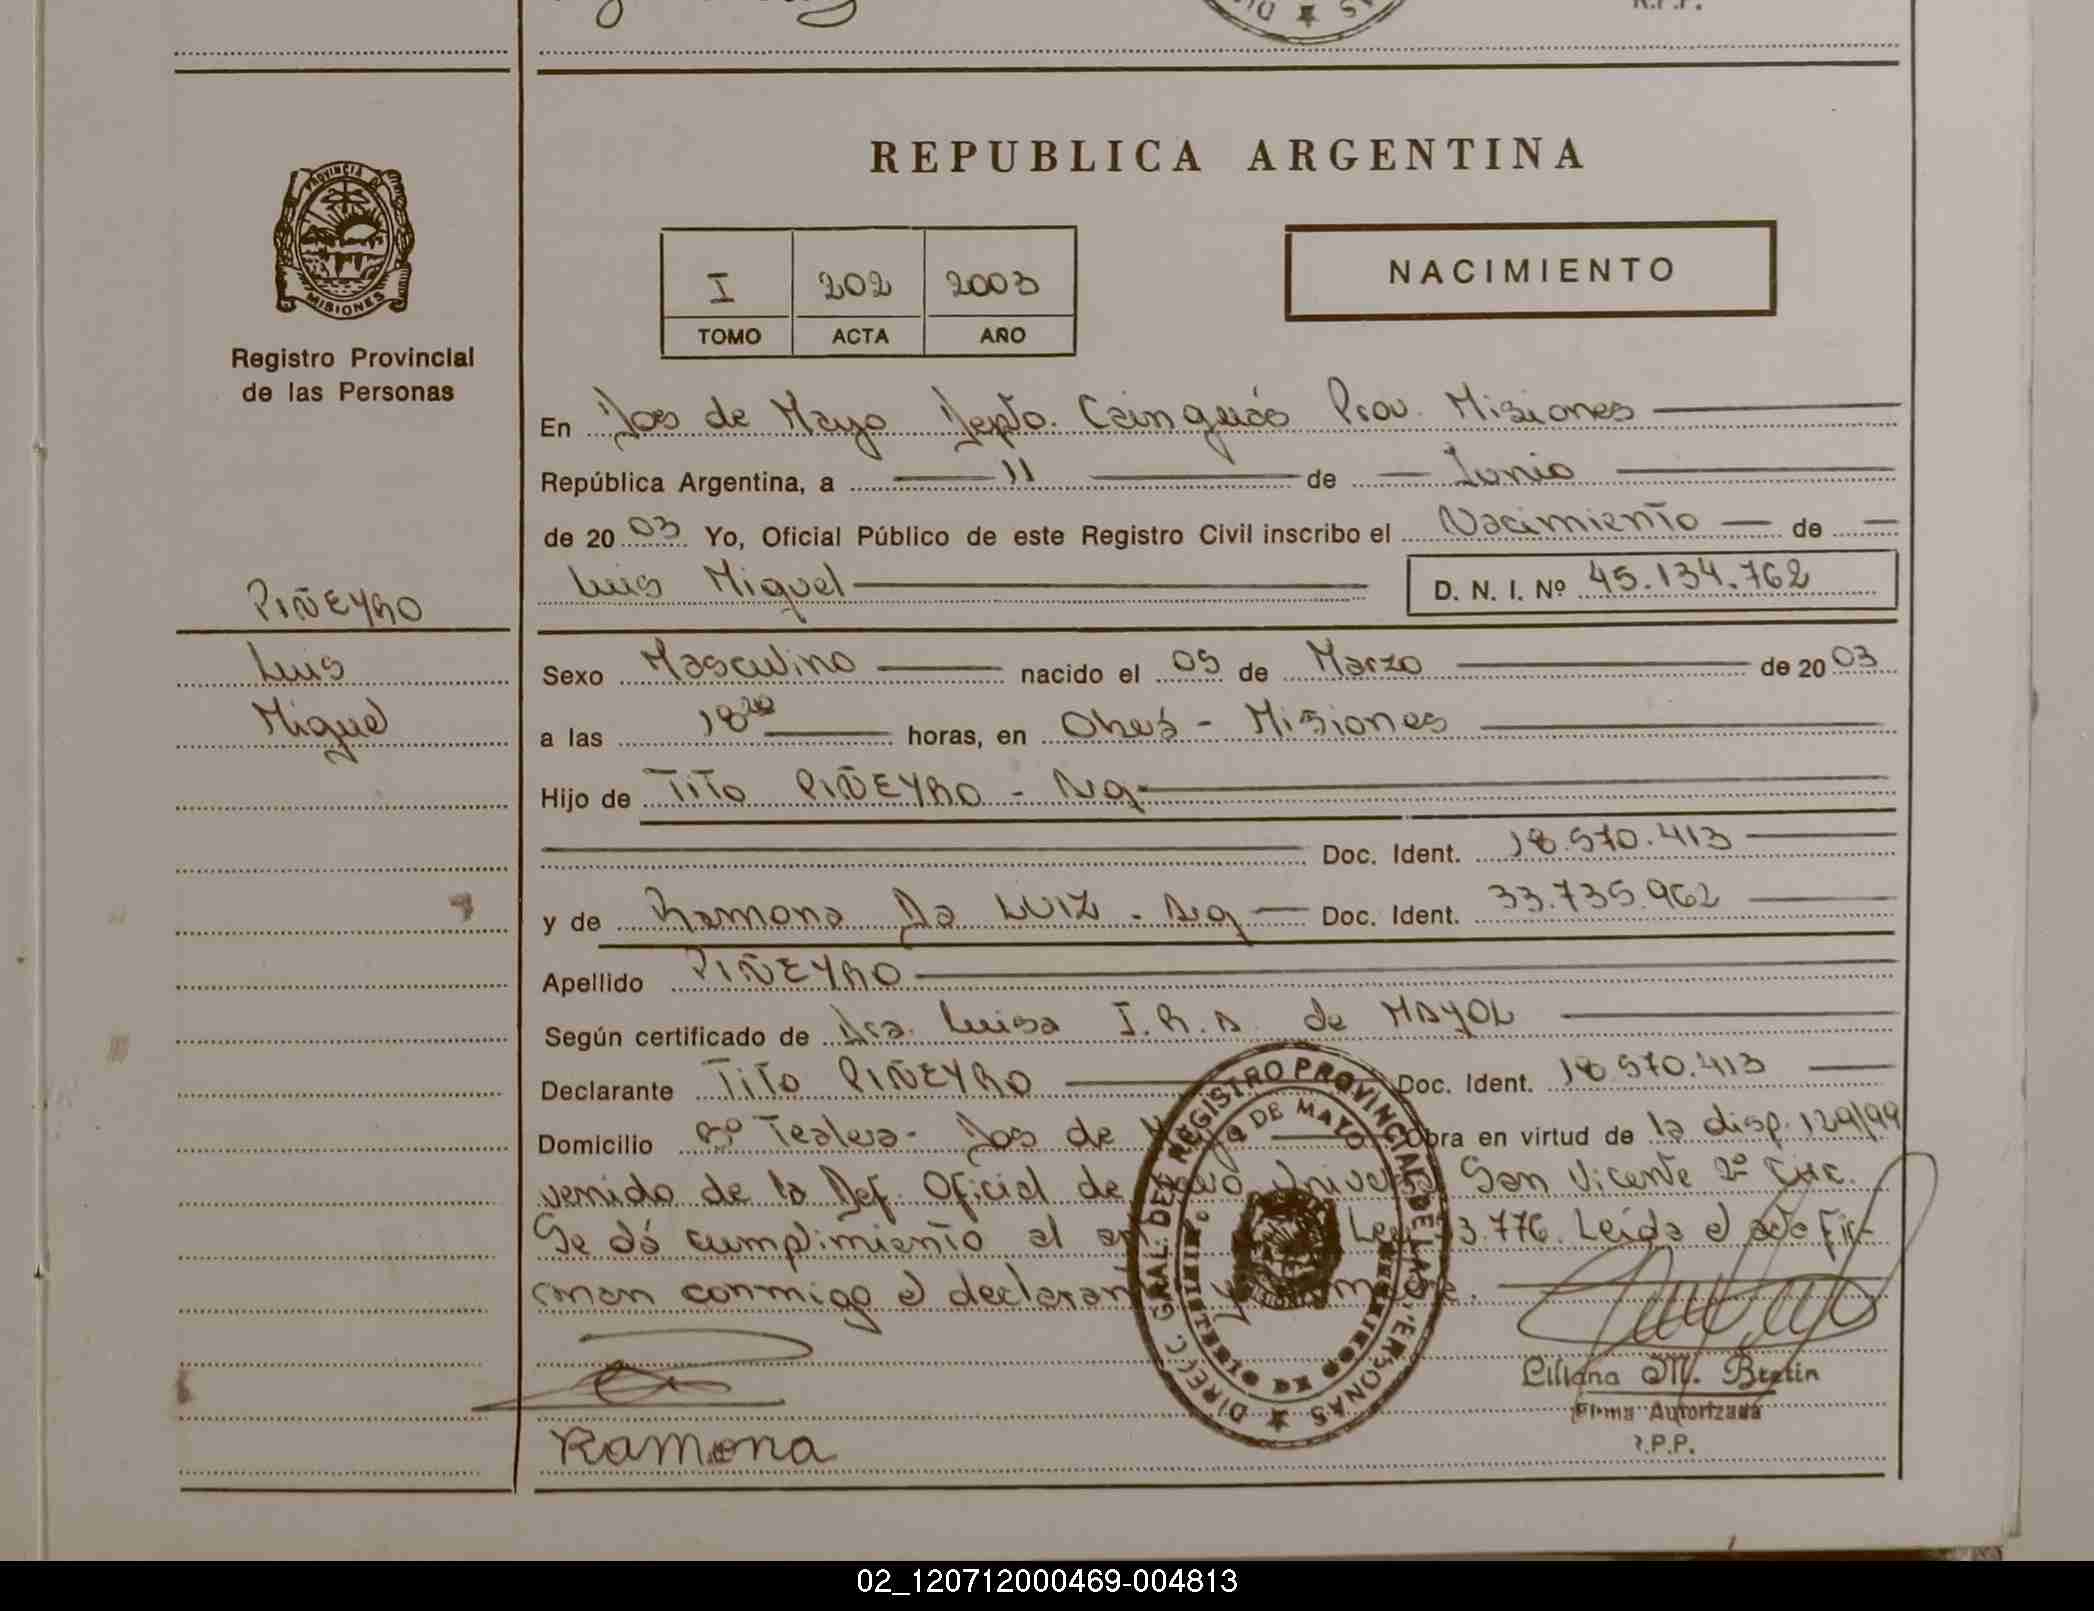 R.P.P.
REPUBLICA ARGENTINA
PROVINCIA DE
MISIONES
Registro Provincial
de las Personas
I 202 2003
TOMO ACTA AÑO
NACIMIENTO
En Dos de Mayo Depto. Cainguás Prov. Misiones
República Argentina, a 11 de Junio
de 2003 Yo, Oficial Público de este Registro Civil inscribo el Nacimiento de
Luis Miguel D. N. I. Nº 45.134.762
PIÑEYRO
Luis
Miguel
Sexo Masculino nacido el 05 de Marzo de 2003
a las 18 20 horas, en Oberá - Misiones
Hijo de Tito PIÑEYRO - Arg
Doc. Ident. 18.570.413
y de Ramona Da LUIZ - Arg Doc. Ident. 33.735.962
Apellido PIÑEYRO
Según certificado de Dra. Luisa I.R.A. de MAYOL
Declarante Tito PIÑEYRO Doc. Ident. 18.570.413
Domicilio Bº Dos de Mayo Obra en virtud de la disp. 129/99
venido de la Def. Oficial de San Vicente 2º Circ.
Se dá cumplimiento al art Ley 23.776. Leída el acta fir-
man conmigo el declarante y
DIRECC. GRAL. DEL REGISTRO PROVINCIAL DE LAS PERSONAS
DE MAYO
Ramona
Liliana M. Bretin
Firma Autorizada
R.P.P.
02_120712000469-004813